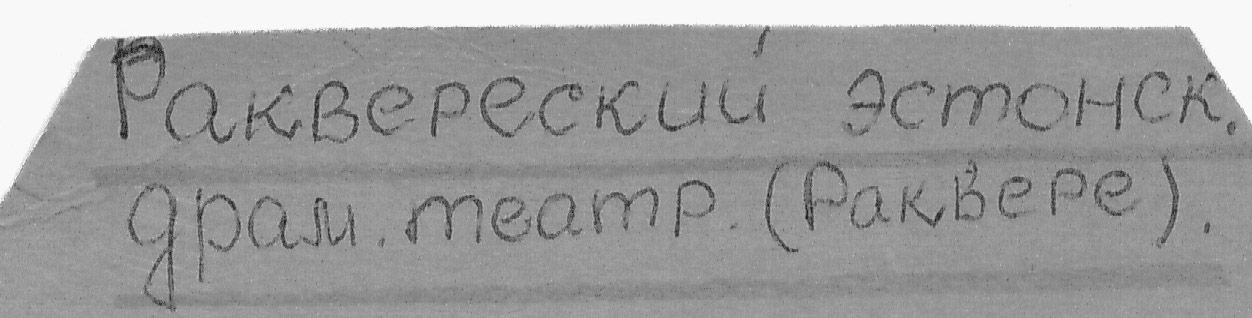 Раквереский эстонск.
драм. театр. (Раквере).